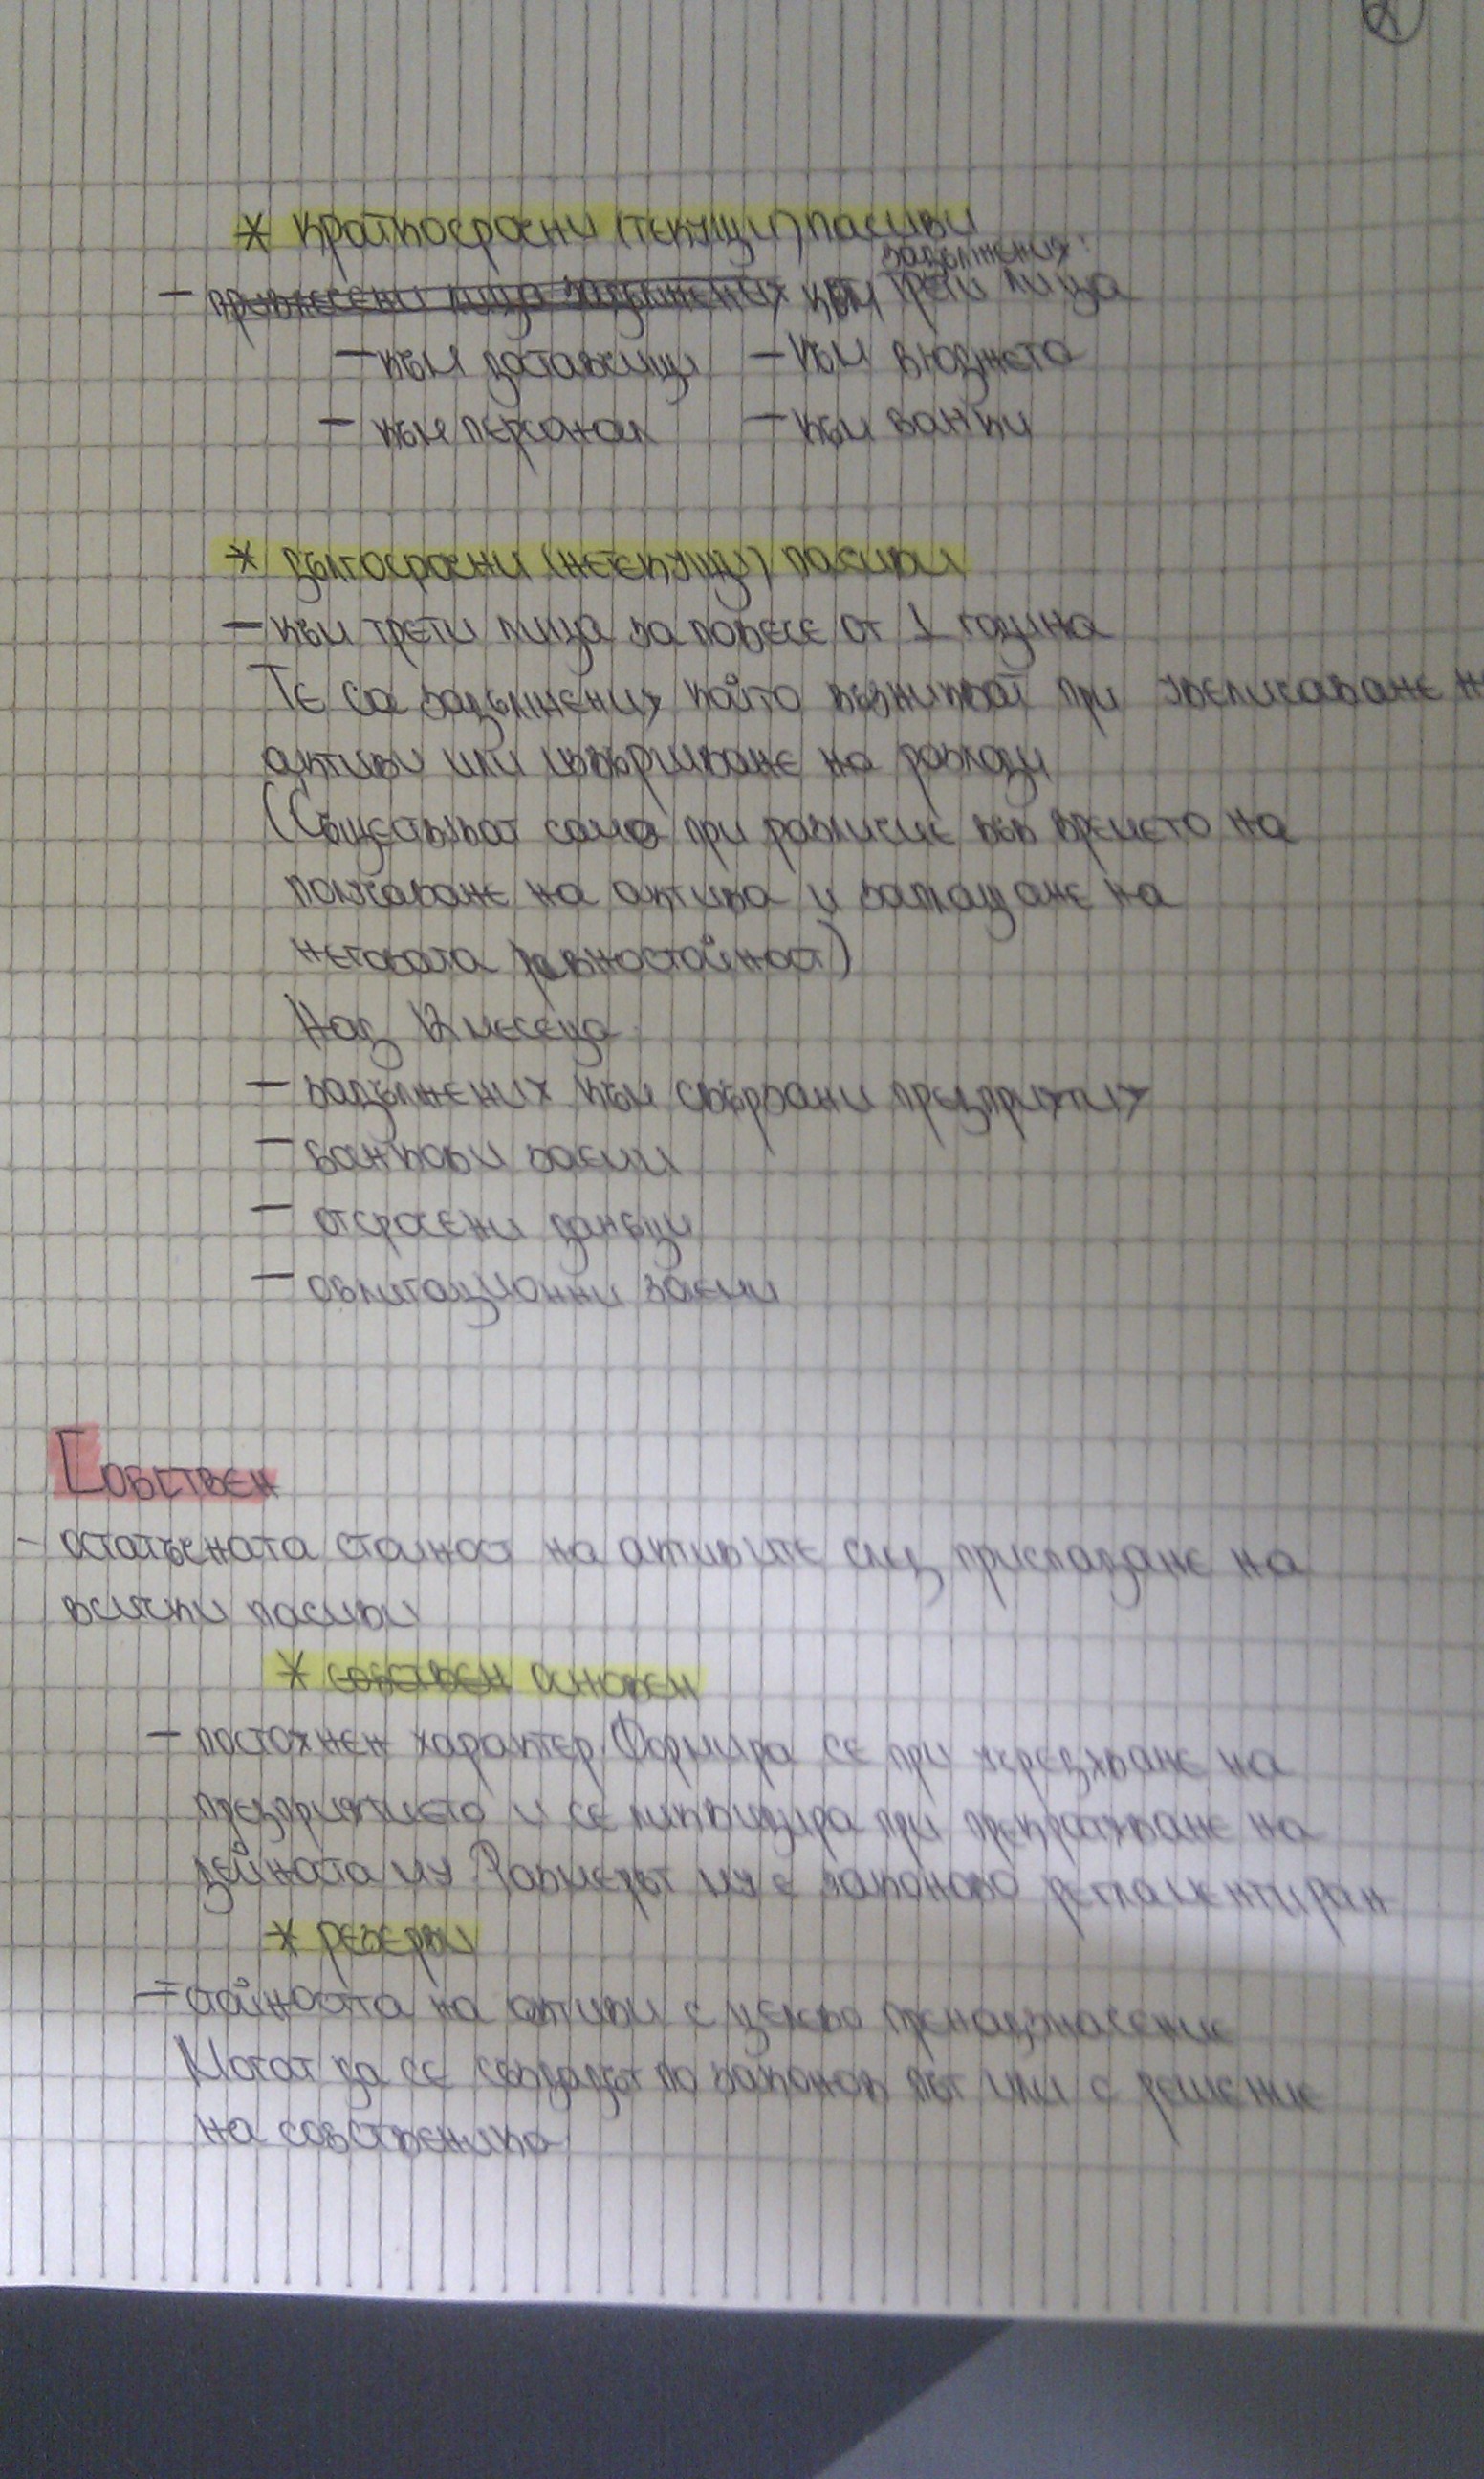 2
* краткосрочни (текущи) пасиви
задължения:
към трети лица
- към доставчици - към бюджета
- към персонал - към банки
* дългосрочни (нетекущи) пасиви
- към трети лица за повече от 1 година
Те са задължения който възникват при увеличаване на
активи или извършване на разходи
(Съществуват само при различие във времето на
получаване на актива и заплащане на
неговата равностойност)
Над 12 месеца
- задължения към свързани предприятия
- банкови заеми
- отсрочени данъци
- облигационни заеми
Собствен
- остатъчната стойност на активите след приспадане на
всички пасиви
* собствен основен
- постоянен характер. Формира се при учредяване на
предприятието и се ликвидира при прекратяване на
дейноста му. Размерът му е законово регламентиран
* резерви
- стойността на активи с целево предназначение
Могат да се създадат по законов път или с решение
на собственика